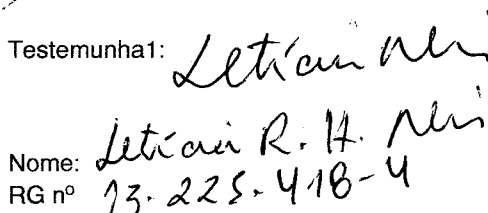 Testemunha1: Letícia Neri
Nome: Letícia R. H. Neri
RG nº 13.225.418-4